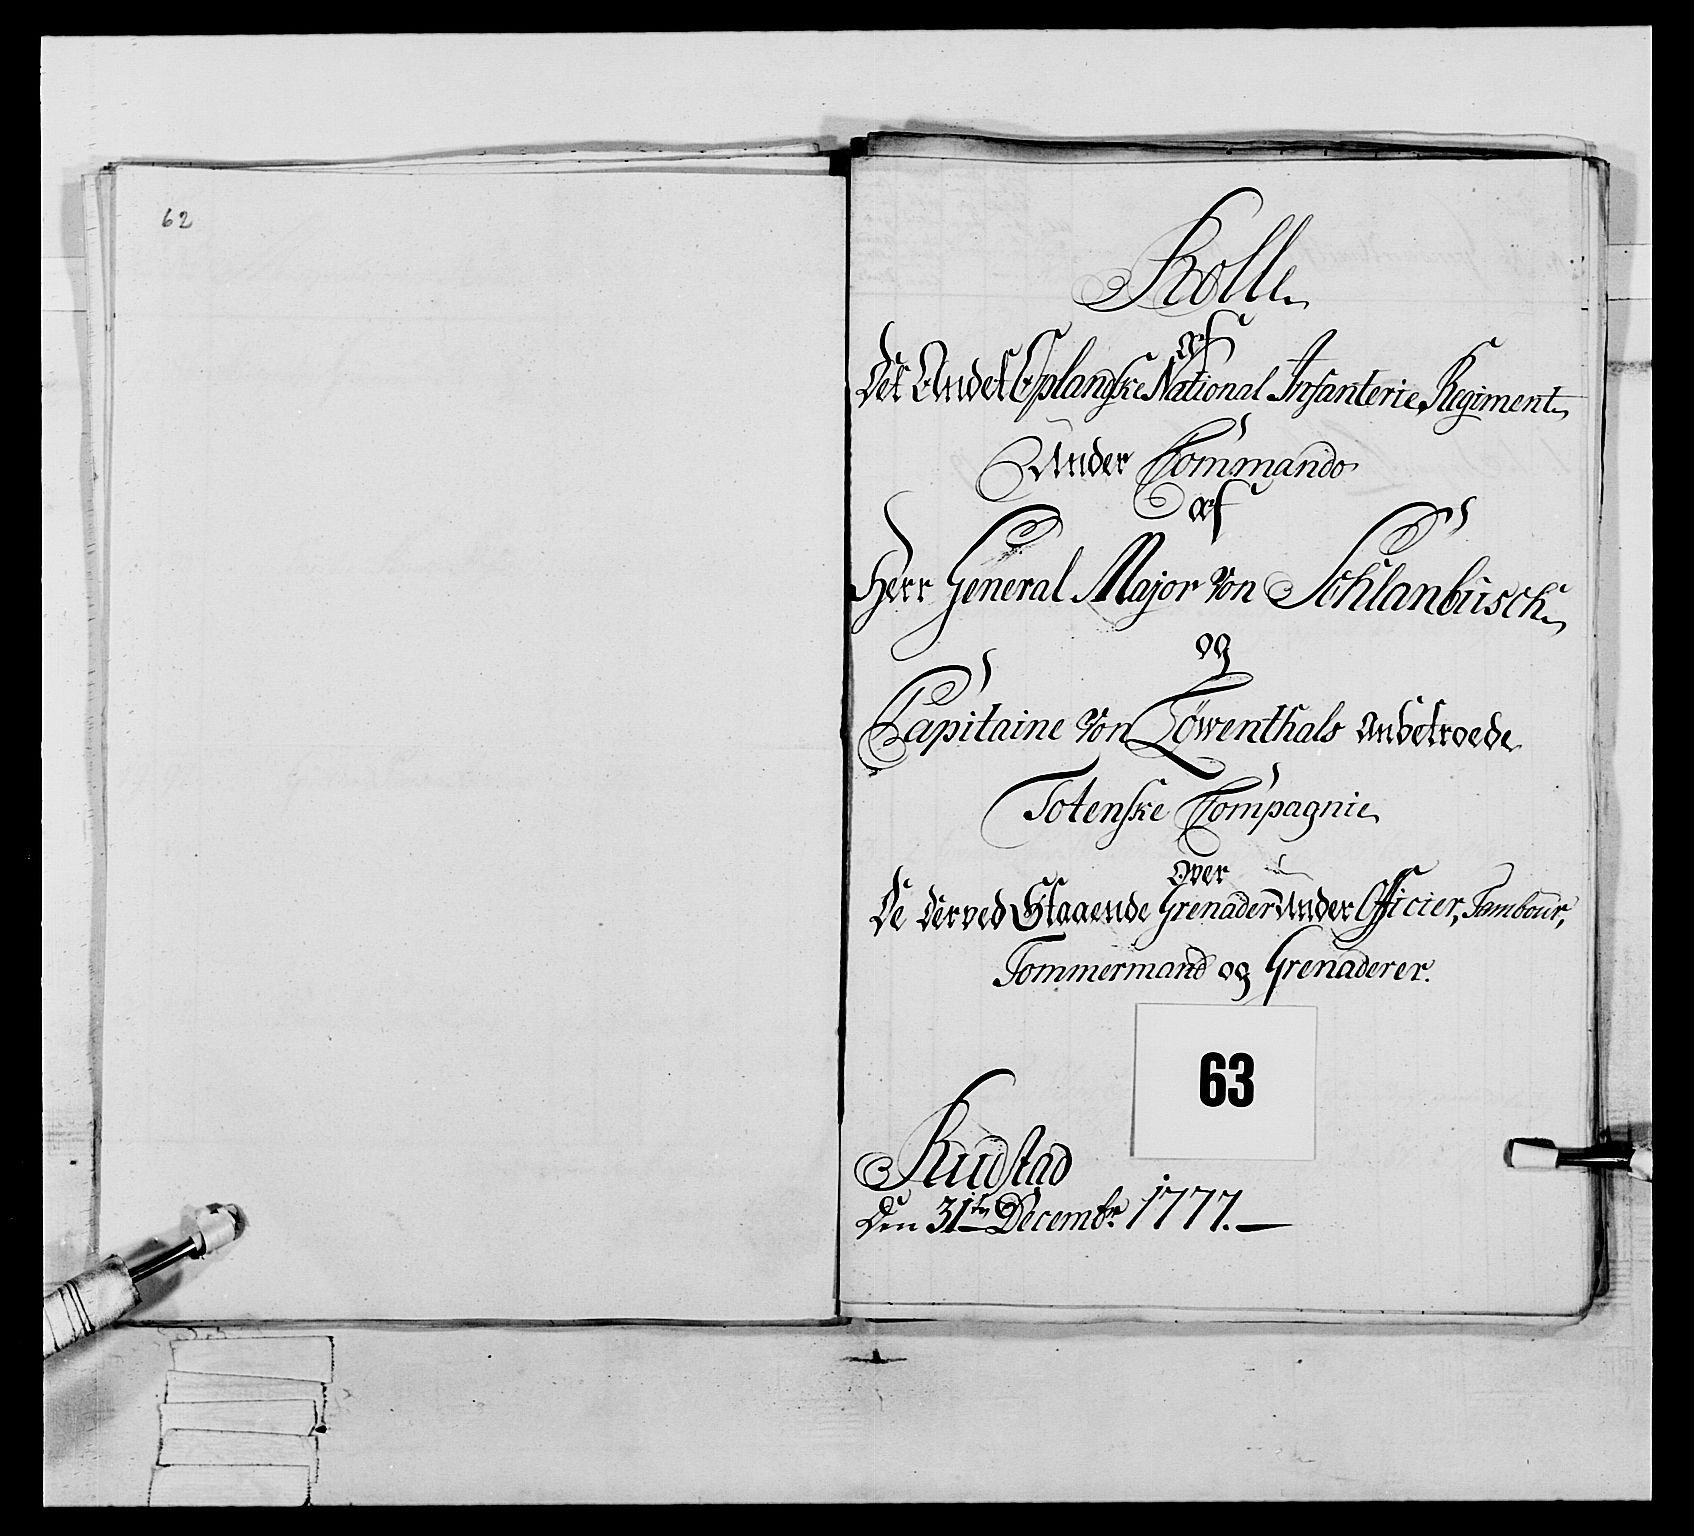 62
Rolle
af
Det Andet Oplandske National Infanterie Regiment
Under Commando
af
Herr General Major von Schlanbusch
og
Capitaine von Löwenthals Anbetroede
Totenske Compagnie
Over
De derved Staaende Grenader Under Officier, Tambour,
Tømmermand og Grenaderer.
63
Rudstad
Den 31te Decembr 1777.